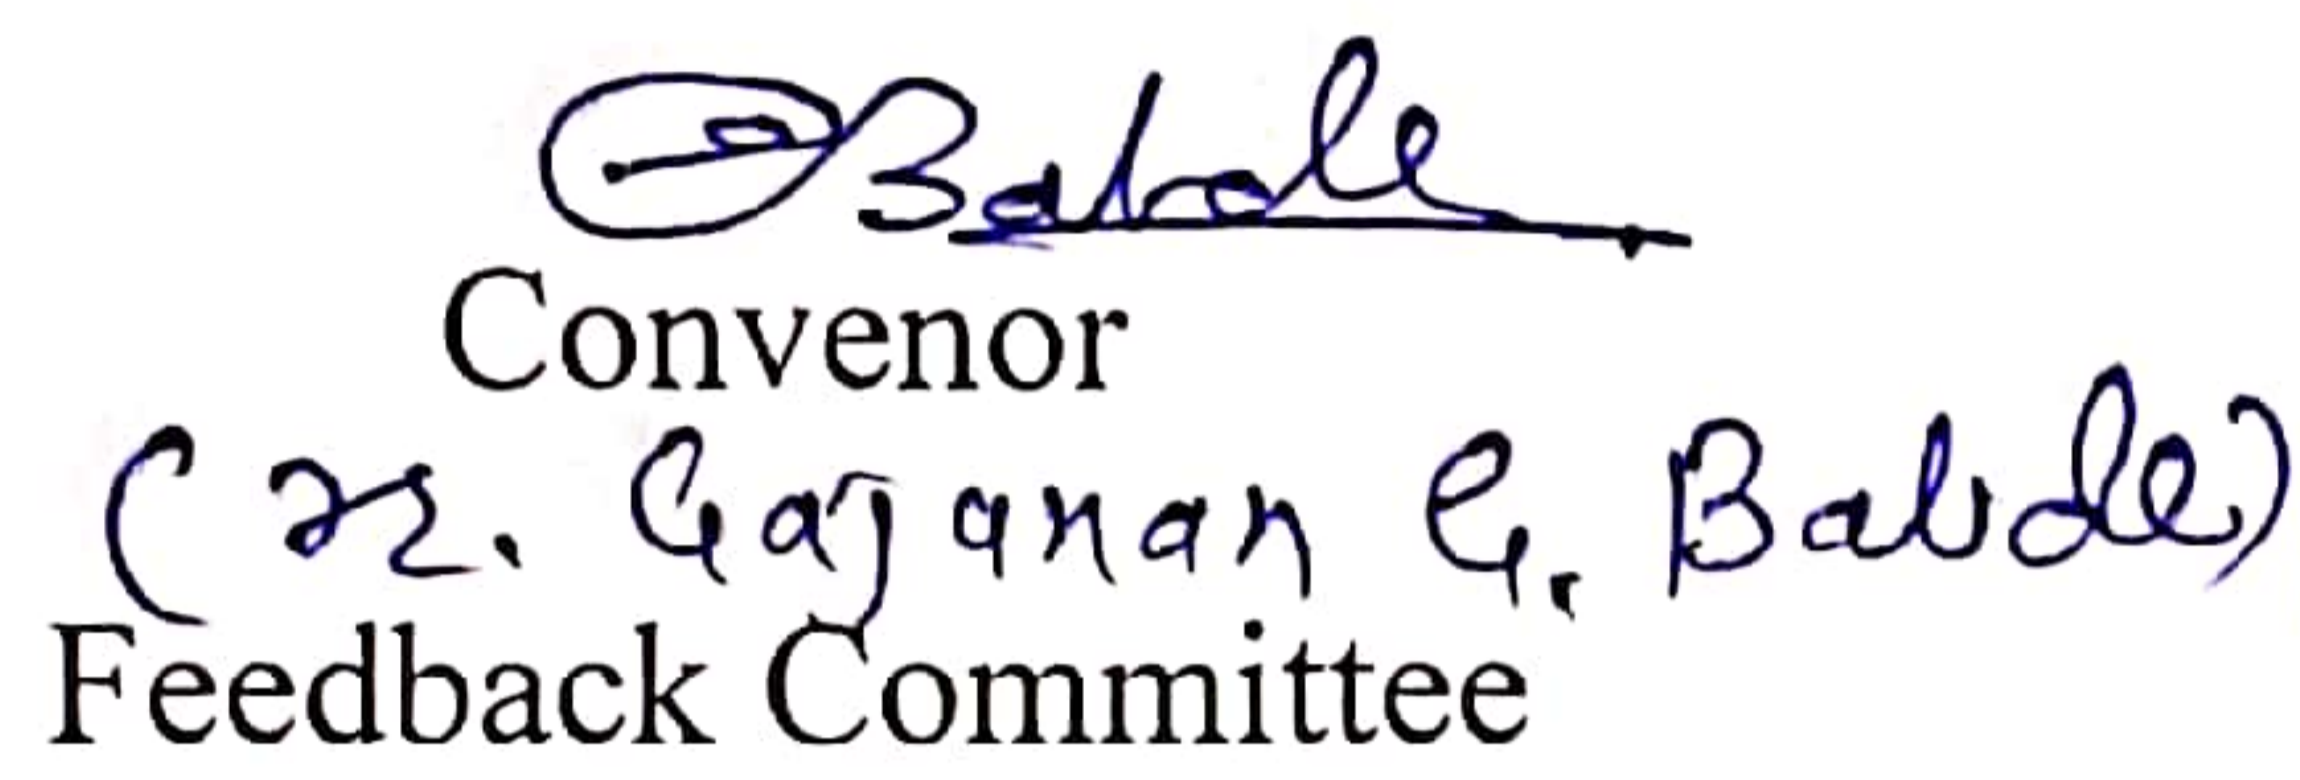 Babde
Convenor
(Dr. Gajanan G. Babde)
Feedback Committee